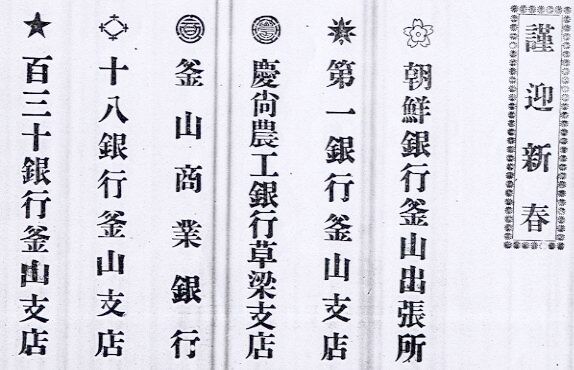 謹迎新春
朝鮮銀行釜山出張所
第一銀行釜山支店
慶尙農工銀行草梁支店
釜山商業銀行
十八銀行釜山支店
百三十銀行釜山支店